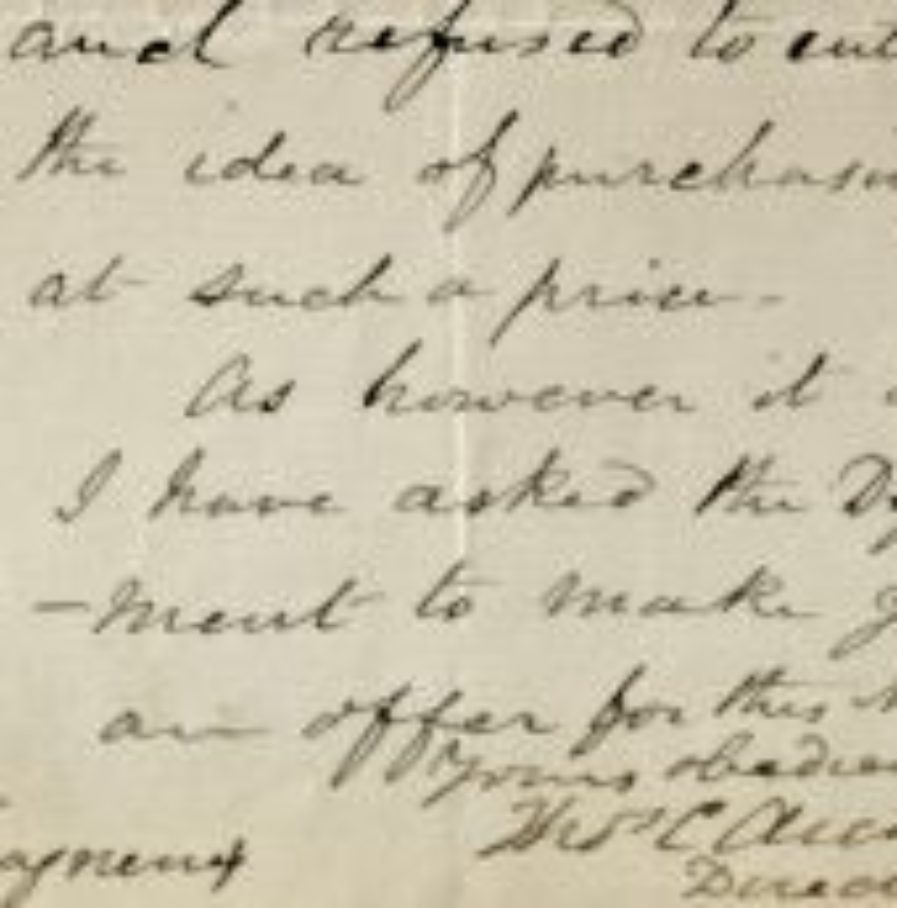 and refused to ent
the idea of purchasi
at such a price -
As however it
I have asked the D
-ment to make
an offer for this
Yours obedien
Thos C
Direc